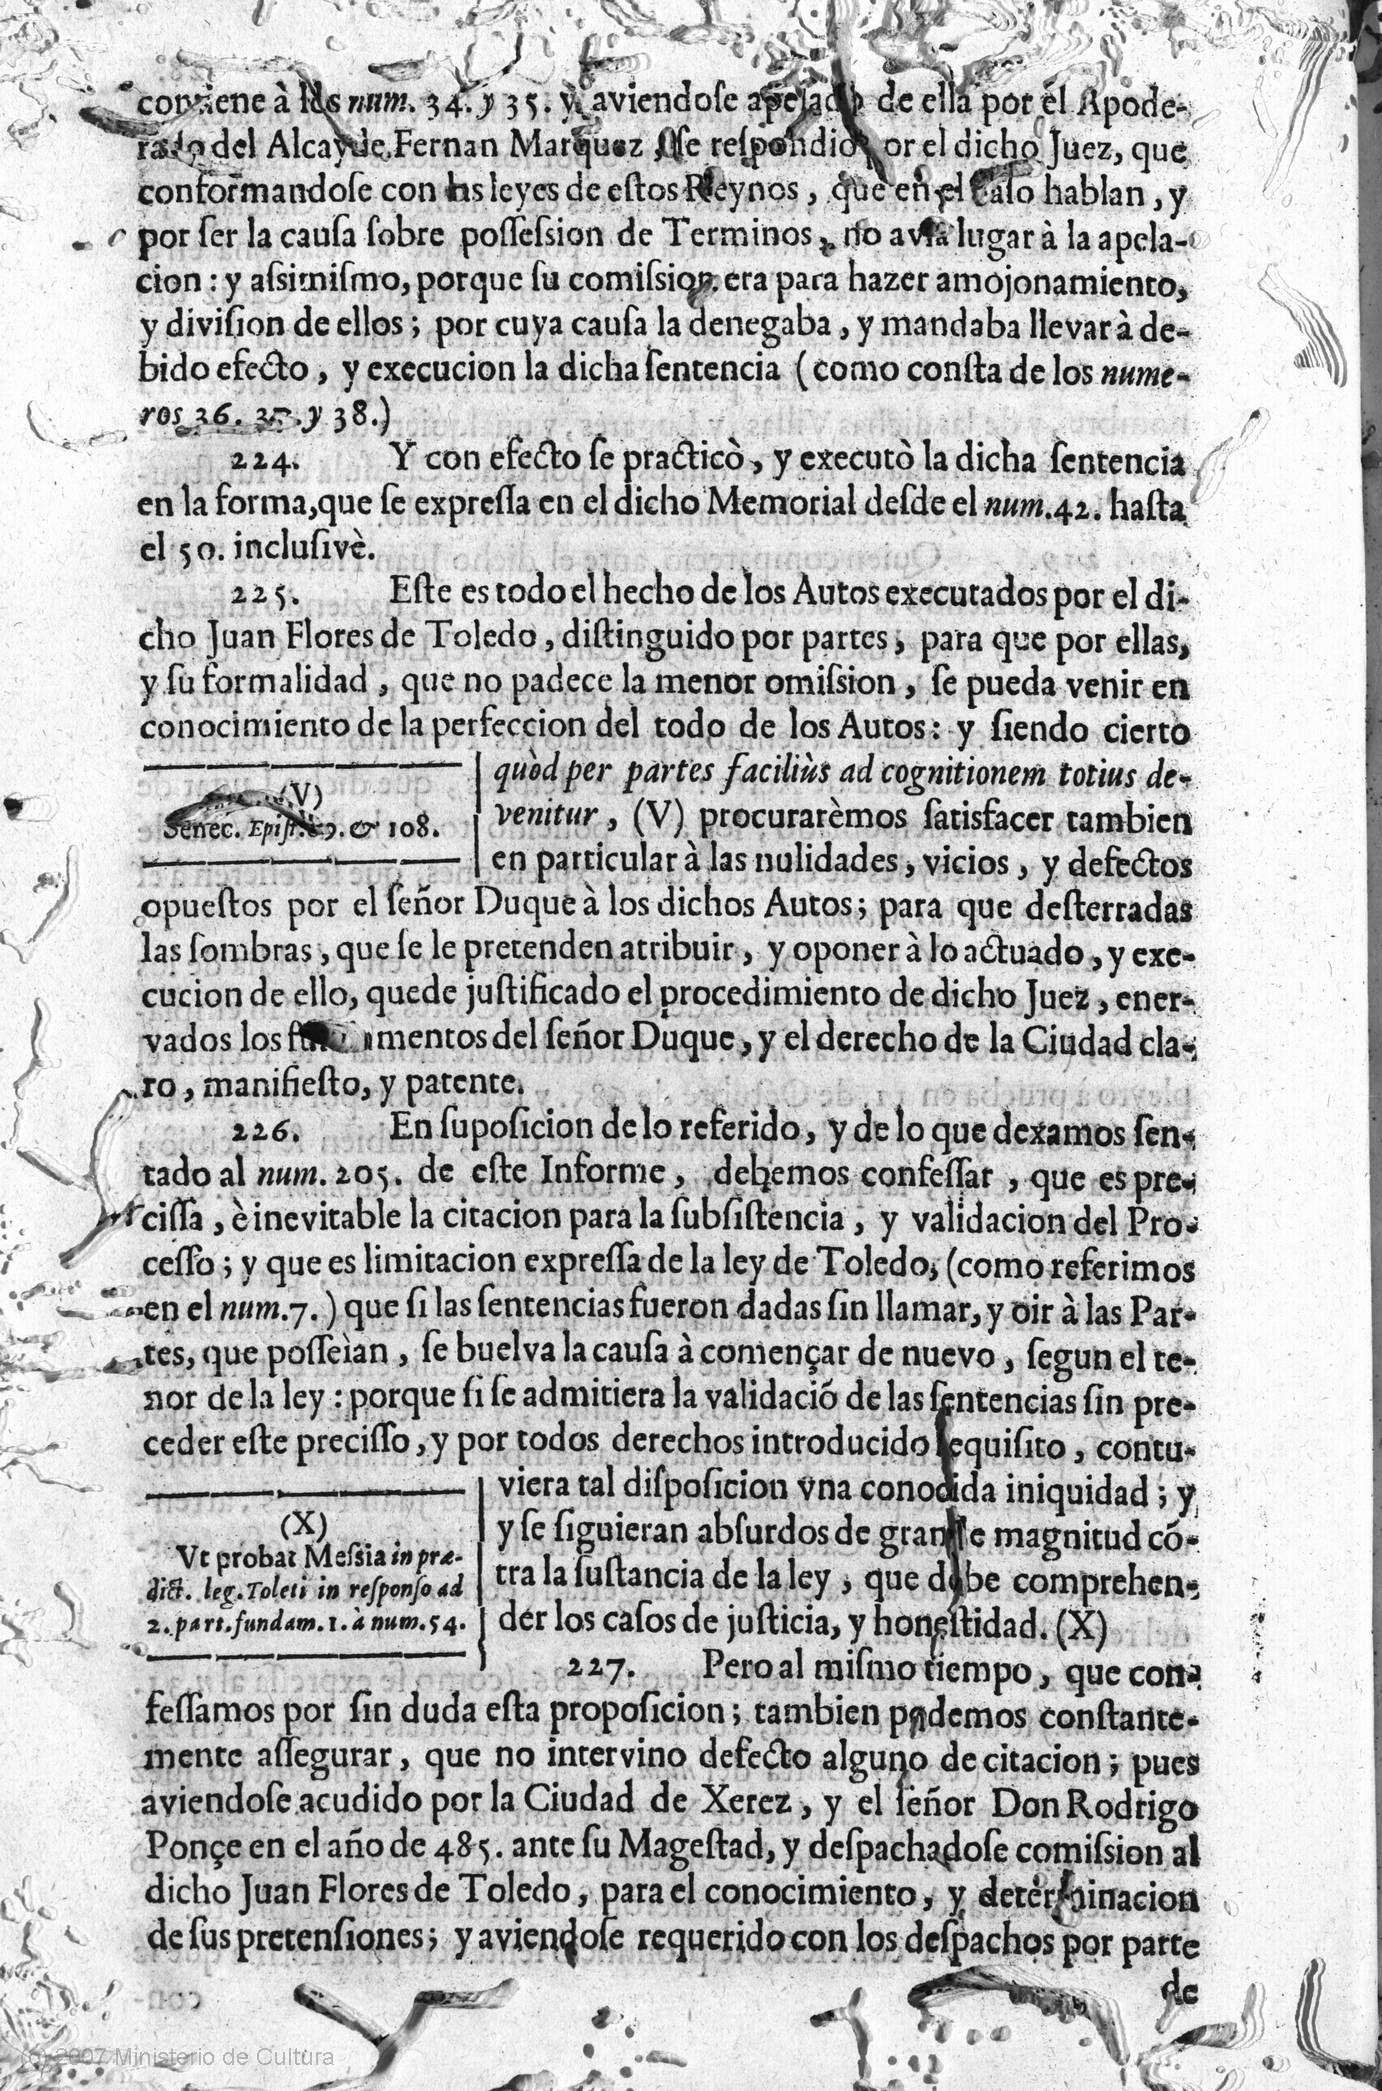 contiene à los num. 34. y 35. y aviendose apelado de ella por el Apode-
rado del Alcayde Fernan Marquez, se respondiò por el dicho Juez, que
conformandose con las leyes de estos Reynos, que en el caso hablan, y
por ser la causa sobre possession de Terminos, no avia lugar à la apela-
cion: y assimismo, porque su comission era para hazer amojonamiento,
y division de ellos; por cuya causa la denegaba, y mandaba llevar à de-
bido efecto, y execucion la dicha sentencia (como consta de los nume-
ros 36. 37. y 38.)
224. Y con efecto se practicò, y executò la dicha sentencia
en la forma, que se expressa en el dicho Memorial desde el num. 42. hasta
el 50. inclusivè.
225. Este es todo el hecho de los Autos executados por el di-
cho Juan Flores de Toledo, distinguido por partes, para que por ellas,
y su formalidad, que no padece la menor omission, se pueda venir en
conocimiento de la perfeccion del todo de los Autos: y siendo cierto
quòd per partes faciliùs ad cognitionem totius de-
venitur, (V) procurarèmos satisfacer tambien
en particular à las nulidades, vicios, y defectos
(V)
Senec. Epist. 89. & 108.
opuestos por el señor Duque à los dichos Autos; para que desterradas
las sombras, que se le pretenden atribuir, y oponer à lo actuado, y exe-
cucion de ello, quede justificado el procedimiento de dicho Juez, ener-
vados los fundamentos del señor Duque, y el derecho de la Ciudad cla-
ro, manifiesto, y patente.
226. En suposicion de lo referido, y de lo que dexamos sen-
tado al num. 205. de este Informe, debemos confessar, que es pre-
cissa, è inevitable la citacion para la subsistencia, y validacion del Pro-
cesso; y que es limitacion expressa de la ley de Toledo, (como referimos
en el num. 7.) que si las sentencias fueron dadas sin llamar, y oir à las Par-
tes, que posseìan, se buelva la causa à començar de nuevo, segun el te-
nor de la ley: porque si se admitiera la validaciõ de las sentencias sin pre-
ceder este precisso, y por todos derechos introducido requisito, contu-
viera tal disposicion vna conocida iniquidad; y
y se siguieran absurdos de grande magnitud cõ-
tra la sustancia de la ley, que debe comprehen-
der los casos de justicia, y honestidad. (X)
(X)
Vt probat Messia in præ-
dict. leg. Toleti in responso ad
2. part. fundam. 1. à num. 54.
227. Pero al mismo tiempo, que con-
fessamos por sin duda esta proposicion; tambien podemos constante-
mente assegurar, que no intervino defecto alguno de citacion; pues
aviendose acudido por la Ciudad de Xerez, y el señor Don Rodrigo
Ponçe en el año de 485. ante su Magestad, y despachadose comission al
dicho Juan Flores de Toledo, para el conocimiento, y determinacion
de sus pretensiones; y aviendose requerido con los despachos por parte
de
(c) 2007 Ministerio de Cultura